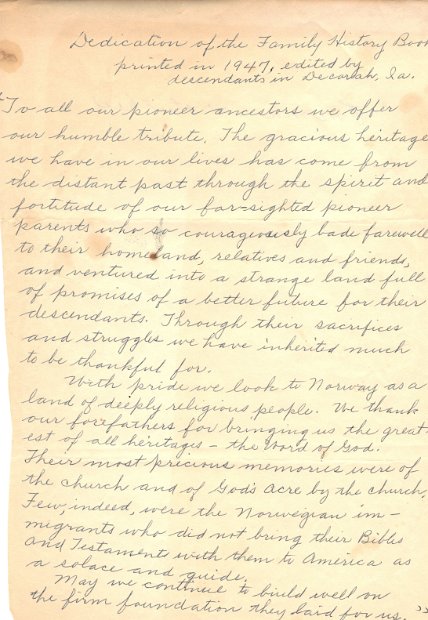 Dedication of the Family History Book
printed in 1947, edited by
descendants in Decorah, Ia.
"To all our pioneer ancestors we offer
our humble tribute. The gracious heritage
we have in our lives has come from
the distant past through the spirit and
fortitude of our far-sighted pioneer
parents who so courageously bade farewell
to their homeland, relatives and friends,
and ventured into a strange land full
of promises of a better future for their
descendants. Through their sacrifices
and struggles we have inherited much
to be thankful for.
With pride we look to Norway as a
land of deeply religious people. We thank
our forefathers for bringing us the great-
est of all heritages - the Word of God.
Their most precious memories were of
the church and of God's Acre by the church.
Few, indeed, were the Norwegian im-
migrants who did not bring their Bibles
and Testaments with them to America as
a solace and guide.
May we continue to build well on
the firm foundation they laid for us."